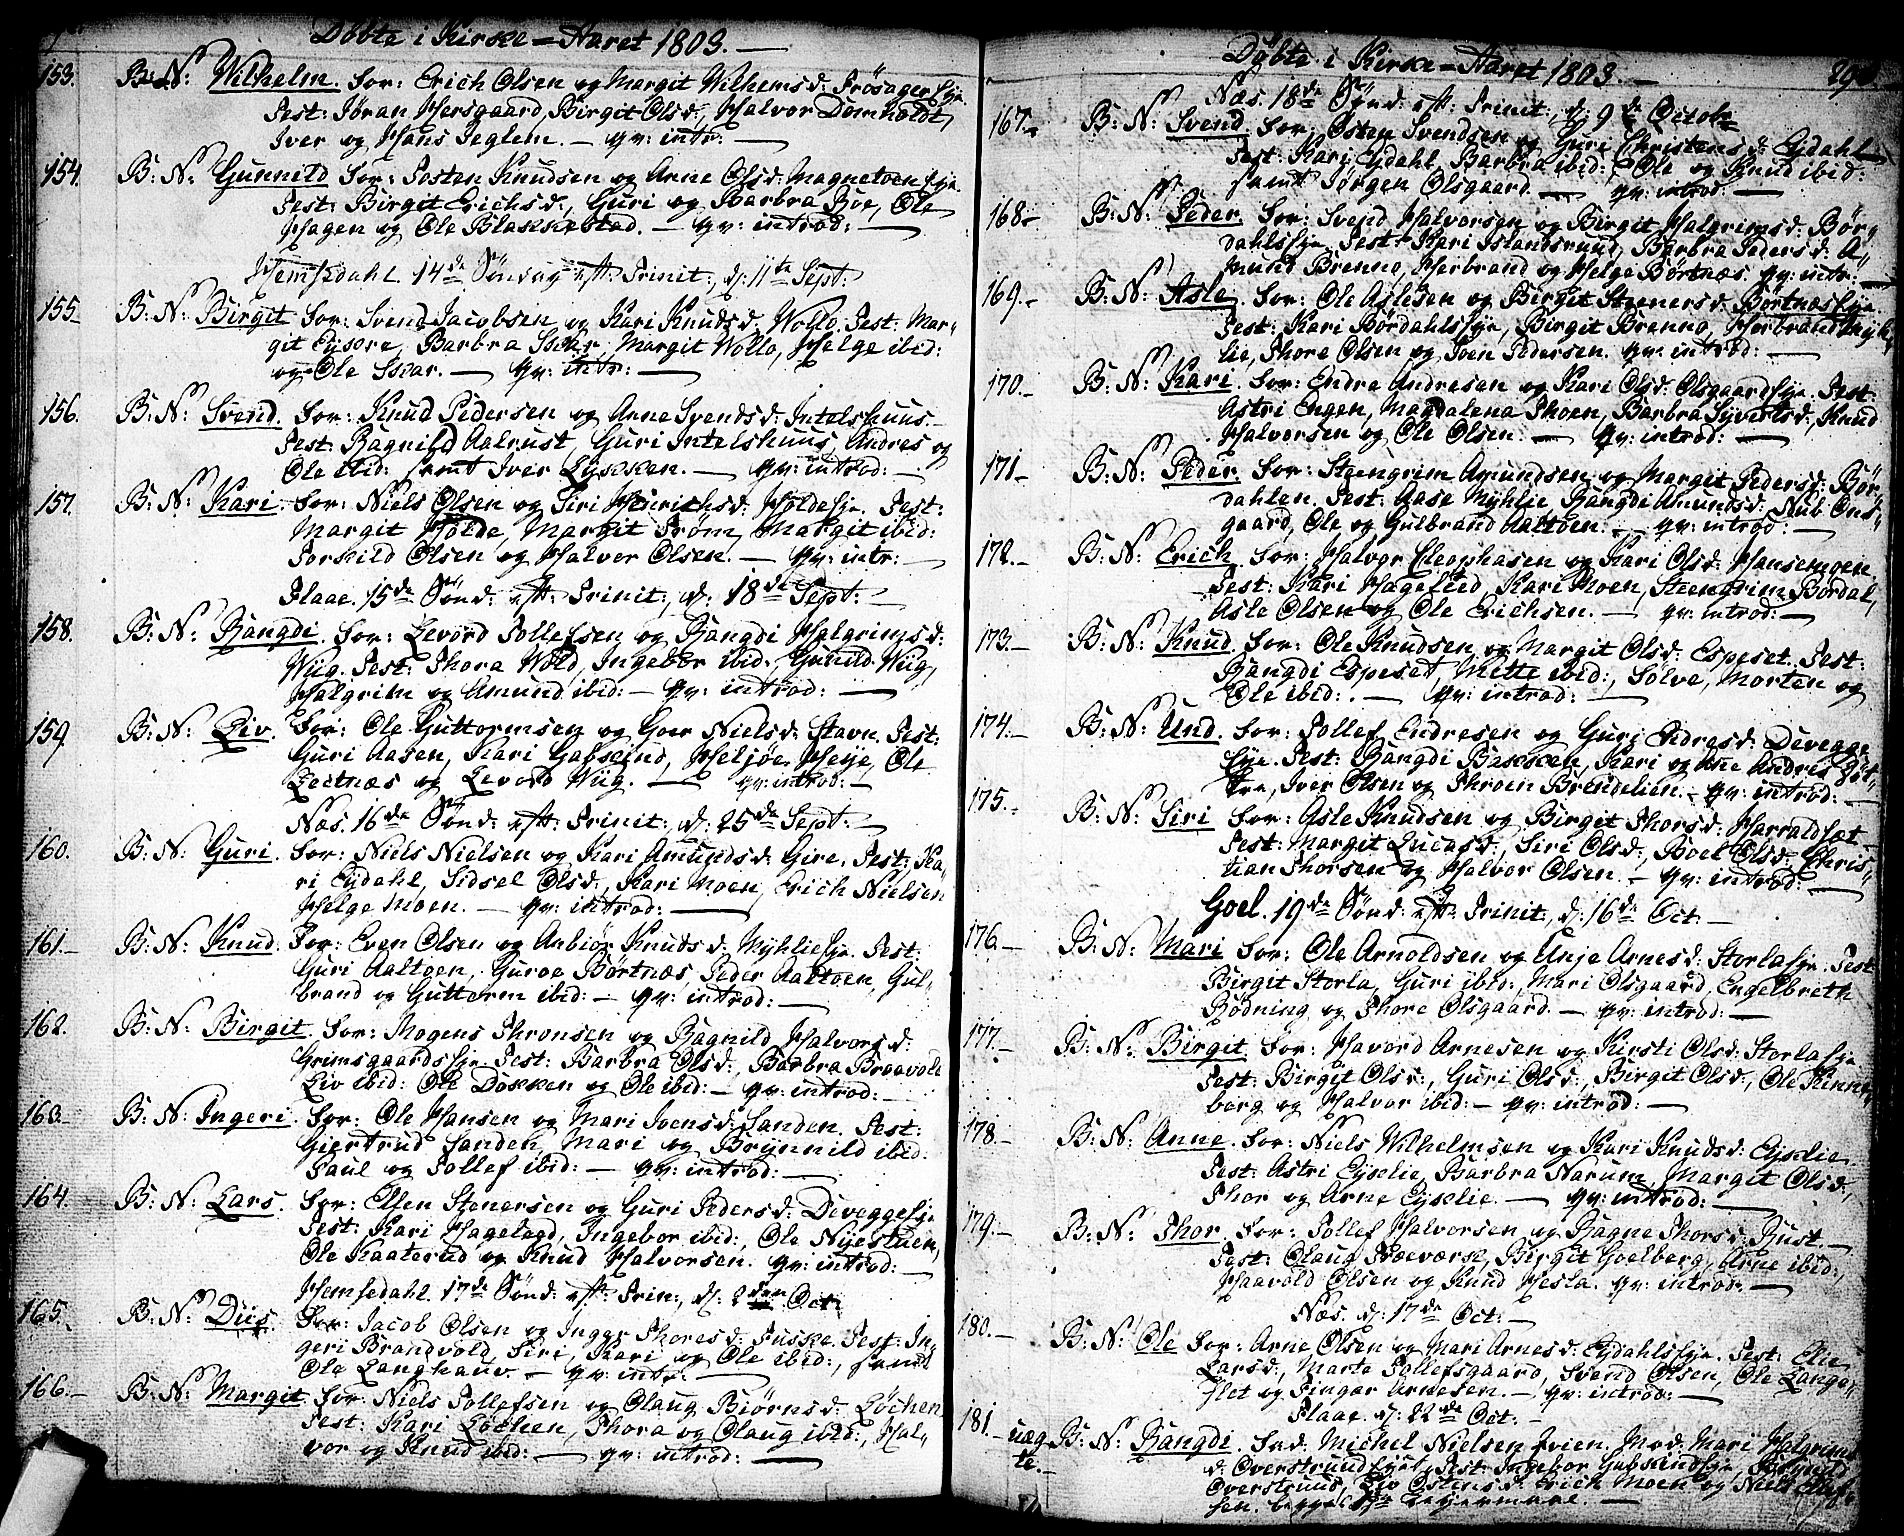 Döbte i Kirke=Aaret 1803. —
153. B: N: Wilhelm. For: Erich Olsen og Margit Wilhemsd: Frösager Eje
Test: Jöran Hersgaard, Birgit Olsd:, Halvor Domholdt,
Iver og Hans Jeglem. — qv: intr: —
154. B: N: Gunnild For: Tosten Knudsen og Anne Olsd: Magnetoen Eje.
Test: Birgit Erichsd:, Guri og Barbra Roe, Ole
Hagen og Ole Blakkestad. — qv: introd: —
Hemsedahl. 14de Söndag eft: Trinit:, d: 11te Sept:
155 B: N: Birgit For: Svend Jacobsen og Kari Knudsd: Wollo. Test: Mar=
git Eysore, Barbra Skar, Margit Wollo, Helge ibid:
og Ole Skar. — qv: intr: —
156. B: N: Svend. For: Knud Pedersen og Arne Svendsd: Intelshuus.
Test: Ragnild Aalrust, Guri Intelshuus, Andres og
Ole ibid: samt Iver Lykken. — qv: introd: —
157. B: N: Kari. For: Niels Olsen og Siri Henrichsd: Holdeeje. Test:
Margit Holde, Margit Trøm, Margit ibid:
Torkild Olsen og Halvor Olsen. — qv: intr: —
Flaae. 15de Sönd: eft: Trinit:, d: 18de Sept: —
158. B: N: Rangdi. For: Levord Tollefsen og Rangdi Halgrimsd:
Wiig. Test: Thora Wold, Ingebor ibid:, Gunild Wiig,
Halgrim og Amund ibid: — qv: introd: —
159. B: N: Liv. For: Ole Guttormsen og Goer Nielsd: Stavn. Test:
Guri Aasen, Kari Gafseind, Heljöe Heije, Ole
Lectnæs og Levord Wiig. — qv: introd: —
Næs. 16de Sönd: eft: Trinit:, d: 25de Sept: —
160. B: N: Guri. For: Niels Nielsen og Kari Amundsd: Gire. Test: Ka=
ri Eydahl, Sidsel Olsd:, Kari Moen, Erich Nielsen
Helge Moen. — qv: introd: —
161. B: N: Knud. For: Even Olsen og Anbiör Knudsd: Myhlie Eje. Test:
Guri Aaltoen, Guroe Börtnæs, Peder Aaltoen, Gul=
brand og Guttorm ibid: — qv: introd: —
162. B: N: Birgit. For: Mogens Thronsen og Ragnild Halvorsd:
Grimsgaards Eje. Test: Barbra Olsd:, Barbra Braavold
Liv ibid: Ole Dokken og Ole ibid: — qv: introd: —
163 B: N: Ingeri. For: Ole Hansen og Mari Ivensd: Sanden. Test:
Giertrud Sanden, Mari og Brynnild ibid:
Paul og Tollef ibid: — qv: introd: —
164 B: N: Lars. For: Elsen Stenersen og Guri Pedersd: Devegge Eje
Test: Kari Hagelagd, Ingebor ibid:, Ole Nyestuen,
Ole Kaaterud og Knud Halvorsen. qv: introd: —
Hemsedahl. 17de Sönd: eft: Trin:, d: 2den Oct:
165. B: N: Diis. For: Jacob Olsen og Inger Thoresd: Fuske. Test: In=
geri Brandvold, Siri, Kari og Ole ibid:, samt
Ole Langhauv. — qv: intr: —
166. B: N: Margit. For: Niels Tollefsen og Olaug Biörnsd: Löchen
Test: Kari Löchen, Thora og Olaug ibid:, Hal=
vor og Knud ibid: — qv: introd: —
Döbte i Kirke=Aaret 1803. —
Næs. 18de Sönd: eft: Trinit:, d: 9de Octob:
167. B: N: Svend. For: Østen Svendsen og Guri Christensd: Eydahl
Test: Kari Eydahl, Barbra ibid:, Ole og Knud ibid:
samt Jörgen Olsgaard. — qv: introd: —
168. B: N: Peder. For: Svend Halvorsen og Birgit Halgrimsd: Bör=
dahls Eje. Test: Kari Islandsruud, Barbra Pedersd: A=
mund Brenno, Herbrand og Helge Börtnæs. qv: intr: —
169. B: N: Asle. For: Ole Aslesen og Birgit Steenersd: Börtnæs Eje
Test: Kari Bördahls Eje, Birgit Brenno, Herbrand Myh=
lie, Thore Olsen og Sven Pedersen. qv: introd: —
170. B: N: Kari. For: Endre Andresen og Kari Olsd: Olsgaards Eje. Test:
Astri Engen, Magdalena Thoen, Barbra Syvertsd:, Knud
Halvorsen og Ole Olsen. — qv: introd: —
171 B: N: Peder. For: Steengrim Amundsen og Margit Pedersd: Bör=
dahlen. Test: Aase Myhlie, Rangdi Amundsd: Niub Ons=
gaard, Ole og Gulbrand Aaltoen. — qv: introd: —
172. B: N: Erich For: Halvor Cleophasen og Kari Olsd: Hansemoen.
Test: Kari Hageled, Kari Moen, Steengrim Bördal,
Asle Olsen og Ole Erichsen. — qv: introd: —
173. B: N: Knud. For: Ole Knudsen og Margit Olsd: Espeset. Test:
Rangdi Espeset, Mitte ibid:, Sölve, Morten og
Ole ibid: — qv: introd: —
174. B: N: Und. For: Tollef Endresen og Guri Endresd: Devegge
Eje. Test: Rangdi Bakken, Kari og Anne Andresd:
Iver Olsen og Throen Brendelien. — qv: introd: —
175. B: N: Siri For: Asle Knudsen og Birgit Thorsd: Harraldset
Test: Margit Lucasd:, Siri Olsd:, Boel Olsd: Chris=
tian Thorsen og Halvor Olsen. — qv: introd: —
Goel. 19de Sönd: eft: Trinit:, d: 16de Oct: —
176. B: N: Mari For: Ole Arnoldsen og Unje Arnesd: Storla Eje. Test
Birgit Storla, Guri ibid:, Mari Olsgaard, Engelbreth
Rödning og Thore Olsgaard. — qv: introd: —
177. B: N: Birgit. For: Havord Arnesen og Kirsti Olsd: Storla Eje
Test: Birgit Olsd:, Guri Olsd:, Birgit Olsd:, Ole Kinne=
berg og Halvor ibid: — qv: introd: —
178. B: N: Anne. For: Niels Wilhelmsen og Kari Knudsd: Eyklie.
Test: Astri Eyklie, Barbra Narum, Margit Olsd:
Thor og Arne Eyklie. — qv: introd: —
179. B: N: Thor. For: Tollef Halvorsen og Ragne Thorsd: Rust. —
Test: Olaug Stoeværk, Birgit Goelberg, Arne ibid:,
Haavold Olsen og Knud Hesla. qv: introd: —
Næs. d: 17de Oct: —
180. B: N: Ole For: Arne Olsen og Mari Arnesd: Eydahls Eje. Test: Elie
Larsd:, Marte Tollefsgaard, Svend Olsen, Ole Lange=
slet og Fingar Arnesen. — qv: introd: —
Flaae. d: 22de Oct: —
181. uæg
te. B: N: Rangdi. Fad: Michel Nielsen Ivien. Mod: Mari Halgrims
d: Overstruud Eje. Test: Ingebor Gafseind Eje,
Overstruud, Liv Ostensd: Erich Moen og Niels Olef=
sen. begge Lejermaal. —